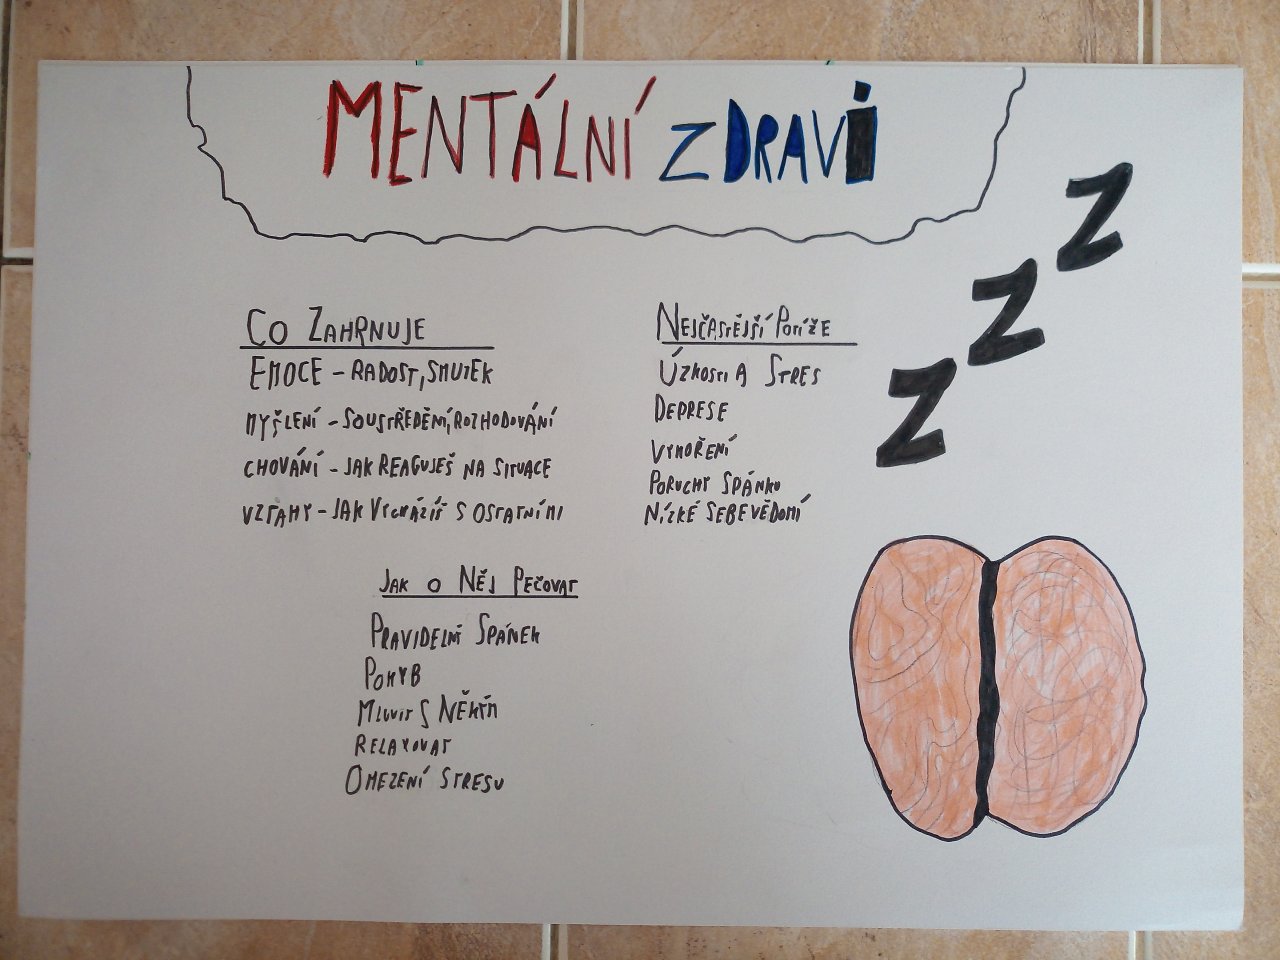 MENTÁLNÍ ZDRAVI
Z
Z
Z
CO ZAHRNUJE
EMOCE – RADOST, SMUTEK
MYŠLENÍ – SOUSTŘEDĚNÍ, ROZHODOVÁNÍ
CHOVÁNÍ – JAK REAGUJEŠ NA SITUACE
VZTAHY – JAK VYCHÁZÍŠ S OSTATNÍMI
NEJČASTĚJŠÍ POTÍŽE
ÚZKOSTI A STRES
DEPRESE
VYHOŘENÍ
PORUCHY SPÁNKU
NÍZKÉ SEBEVĚDOMÍ
JAK O NĚJ PEČOVAT
PRAVIDELNÍ SPÁNEK
POHYB
MLUVIT S NĚKÝM
RELAXOVAT
OMEZENÍ STRESU